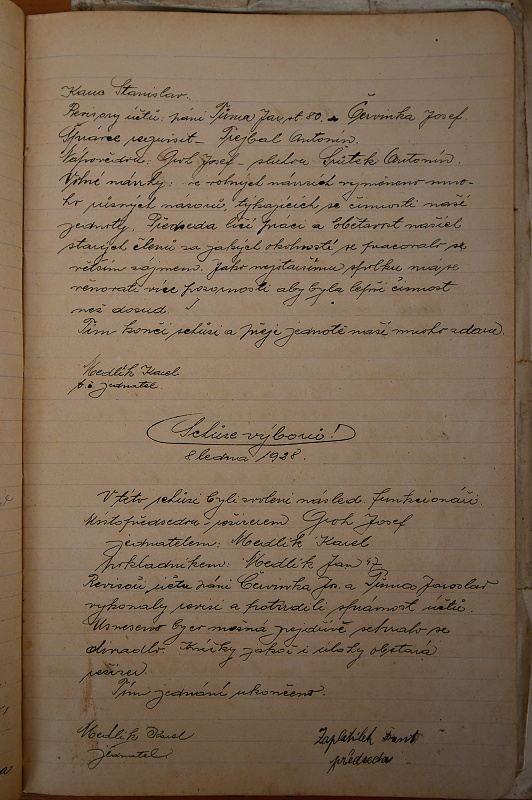 Kaus Stanislav.
Revisory účtů: páni Tůma Jar. st. 80. a Červinka Josef.
Správce requisit – Trejbal Antonín.
Nápovědou: Groh Josef – sluhou Antonín.
Volné návrhy: ve volných návrzích vyměněno mno-
ho různých názorů týkajících se činnosti naší
jednoty. Předseda líčí práci a obětavost našich
starých členů za jakých okolností se pracovalo se
větším zájmem. Jako nejstaršímu spolku má se
věnovati více pozornosti aby byla lepší činnost
než dosud.
Tím končí schůsi a přeje jednotě naší mnoho zdaru.
Medlík Karel
t. č. jednatel
Schůse výborů!
8 ledna 1928.
V této schůsi byli zvoleni násled. funkcionáři.
Místopředsedou režisérem Groh Josef
jednatelem: Medlík Karel
Pokladníkem: Medlík Jan 47
Revisoři účtů páni Červinka Jos. a Tůma Jaroslav
vykonaly revisi a potvrdili správnost účtů.
Usneseno by co možná nejdříve sehrálo se
divadlo. Knížky jakož i úlohy obstará
režisér.
Tím jednání ukončeno.
Medlík Karel
jednatel
Zaplatílek
předseda